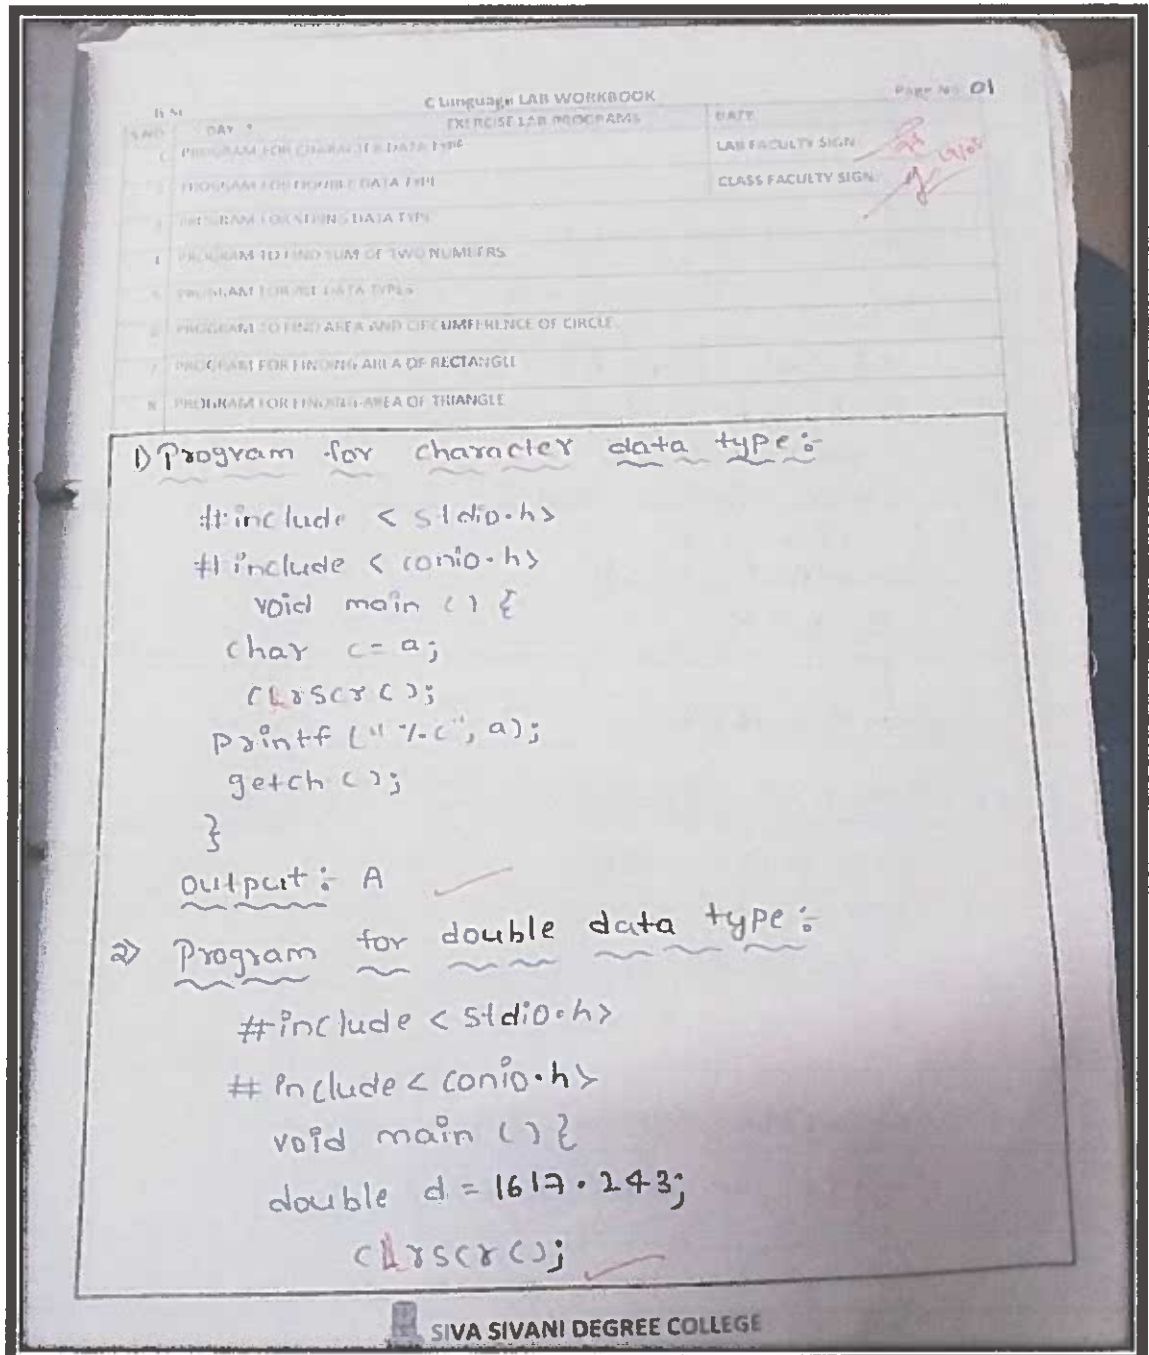 C Language LAB WORKBOOK
Page No 01
S.NO DAY EXERCISE LAB PROGRAMS DATE
1 PROGRAM FOR CHARACTER DATA TYPE
LAB FACULTY SIGN
2 PROGRAM FOR DOUBLE DATA TYPE
CLASS FACULTY SIGN
3 PROGRAM FOR STRING DATA TYPE
4 PROGRAM TO FIND SUM OF TWO NUMBERS
5 PROGRAM FOR ALL DATA TYPES
6 PROGRAM TO FIND AREA AND CIRCUMFERENCE OF CIRCLE.
7 PROGRAM FOR FINDING AREA OF RECTANGLE
8 PROGRAM FOR FINDING AREA OF TRIANGLE
1) Program for character data type :-
#include < stdio.h>
#include < conio.h>
void main () {
char c = a;
clrscr ();
printf (" %c", a);
getch ();
}
output :- A
2) Program for double data type :-
#include < stdio.h>
# include < conio.h>
void main () {
double d = 1617.243;
clrscr ();
SIVA SIVANI DEGREE COLLEGE